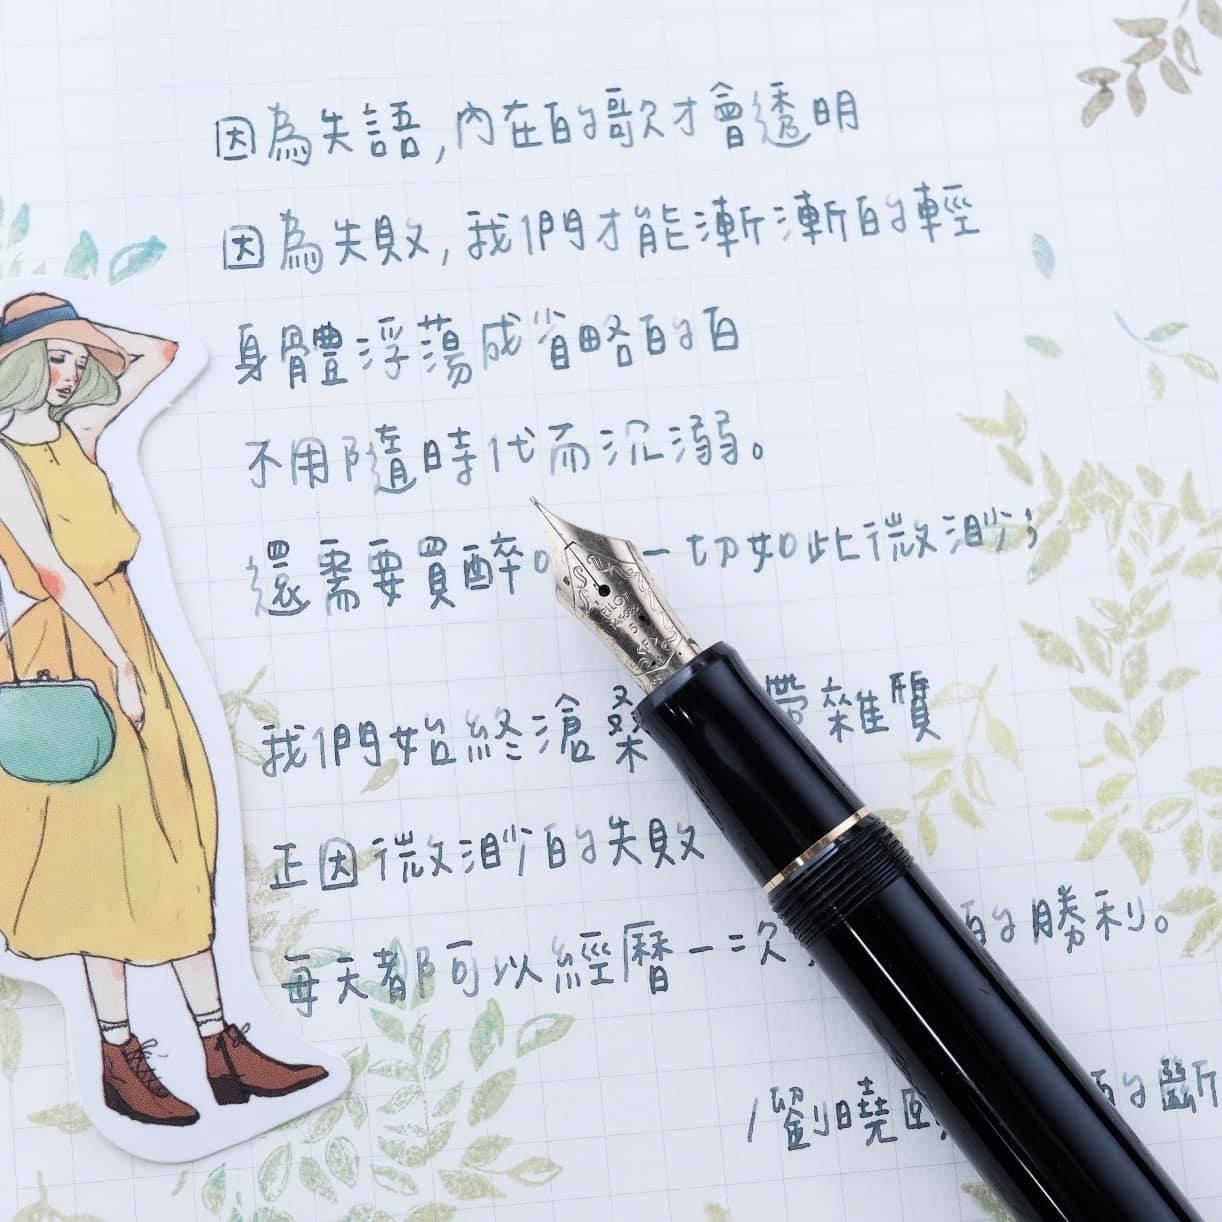 因為失語,內在的歌才會透明
因為失敗,我們才能漸漸的輕
身體浮蕩成省略的白
不用隨時代而沉溺。
還需要買醉 一切如此微渺;
我們始終滄桑 帶雜質
正因微渺的失敗
每天都可以經曆一次 的勝利。
/劉曉頤 的斷
PILOT
5